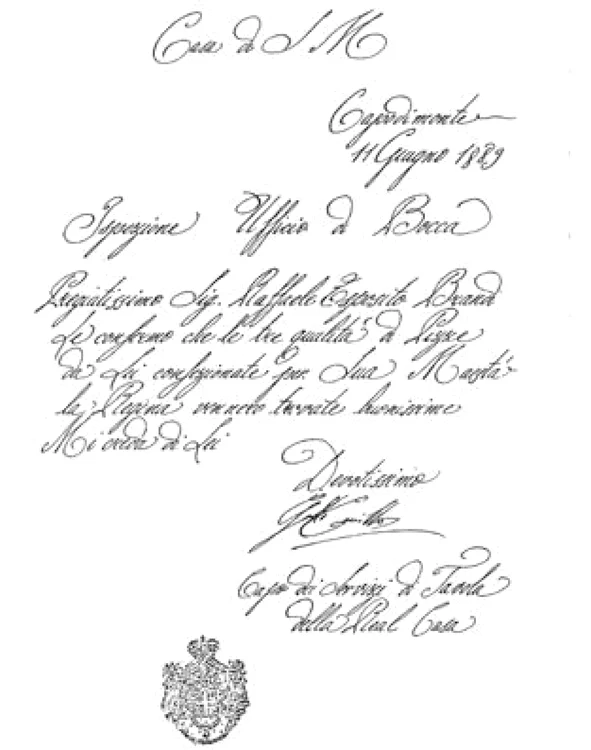 Casa di S M
Capodimonte
11 Giugno 1889
Ispezione Ufficio di Bocca
Pregiatissimo Sig. Raffaele Esposito Brand
Le confermo che le tre qualità di Pizze
da Lei confezionate per Sua Maestà
la Regina vennero trovate buonissime
Mi creda di Lei
Devotissimo
Capo dei Servizi di Tavola
della Real Casa